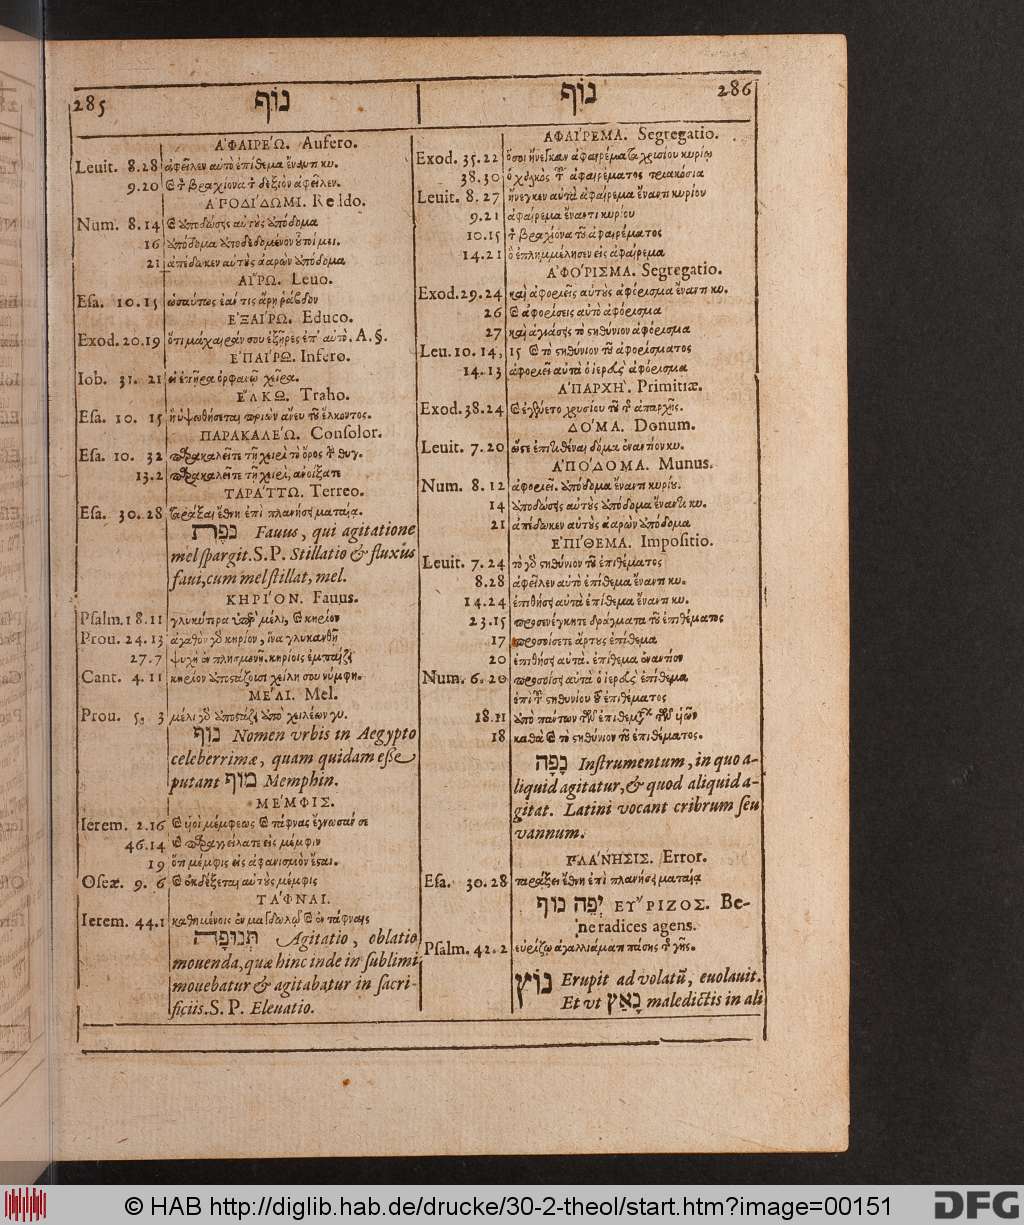 285
נוף
ἈΦΑΙΡΕΏ. Aufero.
Leuit. 8.28 ἀφεῖλεν αὐτὸ ἐπίθεμα ἔναντι κυ.
9.20 βραχίονα δεξιὸν ἀφεῖλεν.
ἈΠΟΔΊΔΩΜΙ. Reddo.
Num. 8.14 ἀποδώσεις αὐτοὺς ἀπόδομα
16 ἀπόδομα ἀποδεδομένοι οὗτοί μοι.
21 ἀπέδωκεν αὐτοὺς ἀαρὼν ἀπόδομα
ΑἼΡΩ. Leuo.
Esa. 10.15 ὡσαύτως ἐάν τις ἄρῃ ῥάβδον
ἘΞΑΊΡΩ. Educo.
Exod. 20.19 ὅτι μάχαιράν σου ἐξῆρες ἐπ' αὐτὸ, A. §.
ἘΠΑΊΡΩ. Infero.
Iob. 31. 21 εἰ ἐπῆρα ὀρφανῷ χεῖρα.
ἝΛΚΩ. Traho.
Esa. 10. 15 ἢ ὑψωθήσεται πρίων ἄνευ τοῦ ἕλκοντος.
ΠΑΡΑΚΑΛΕΏ. Consolor.
Esa. 10. 32 παρακαλεῖτε τῇ χειρὶ τὸ ὄρος θυγ.
13.2 παρακαλεῖτε τῇ χειρὶ, ἀνοίξατε
ΤΑΡΆΤΤΩ. Terreo.
Esa. 30.28 ταράξαι ἔθνη ἐπὶ πλανήσει ματαίᾳ.
נפת Fauus, qui agitatione
mel spargit. S.P. Stillatio & fluxus
faui, cum mel stillat, mel.
ΚΗΡΊΟΝ. Fauus.
Psalm. 18.11 γλυκύτερα ὑπὲρ μέλι, κηρίον
Prou. 24.13 ἀγαθὸν γὸ κηρίον, ἵνα γλυκανθῇ
27.7 ψυχὴ ἐν πλησμονῇ κηρίοις ἐμπαίζει
Cant. 4.11 κηρίον ἀποστάζουσι χείλη σου νύμφη.
ΜΈΛΙ. Mel.
Prou. 5. 3 μέλι γὸ ἀποστάζει ἀπὸ χειλέων γυ.
נוף Nomen vrbis in Aegypto
celeberrimæ, quam quidam esse
putant מוף Memphin.
ΜΈΜΦΙΣ.
Ierem. 2.16 υἱοὶ μέμφεως τάφνας ἔγνωσάν σε
46.14 παραγγείλατε εἰς μέμφιν
19 ὅτι μέμφις εἰς ἀφανισμὸν ἔσται.
Oseæ. 9. 6 ἐκδέξεται αὐτοὺς μέμφις
ΤΆΦΝΑΙ.
Ierem. 44.1 καθημένοις ἐν μαγδώλῳ ἐν τάφναις
תנופה Agitatio, oblatio
mouenda, quæ hinc inde in sublimi
mouebatur & agitabatur in sacri-
ficiis. S. P. Eleuatio.
נוף
286
ἈΦΑΊΡΕΜΑ. Segregatio.
Exod. 35.22 ὅσοι ἤνεγκαν ἀφαιρέματα χρυσίου κυρίῳ
38.30 ὁ χαλκὸς ἀφαιρέματος τριακόσια
Leuit. 8. 27 ἤνεγκεν αὐτὰ ἀφαίρεμα ἔναντι κυρίου
9.21 ἀφαίρεμα ἔναντι κυρίου
10.15 βραχίονα τοῦ ἀφαιρέματος
14.21 ὃ ἐπλημμέλησεν εἰς ἀφαίρεμα
ἈΦΌΡΙΣΜΑ. Segregatio.
Exod. 29.24 καὶ ἀφοριεῖς αὐτοὺς ἀφόρισμα ἔναντι κυ.
26 ἀφορίσεις αὐτὸ ἀφόρισμα
27 καὶ ἁγιάσεις τὸ στηθύνιον ἀφόρισμα
Leu. 10. 14, 15 τὸ στηθύνιον τοῦ ἀφορίσματος
14.13 ἀφοριεῖ αὐτὰ ὁ ἱερεὺς ἀφόρισμα
ἈΠΑΡΧΉ. Primitiæ.
Exod. 38.24 ἐγένετο χρυσίου τοῦ ἀπαρχῆς.
ΔΌΜΑ. Donum.
Leuit. 7.20 ὥστε ἐπιτιθέναι δόμα ἐναντίον κυ.
ἈΠΌΔΟΜΑ. Munus.
Num. 8.12 ἀφοριεῖ. ἀπόδομα ἔναντι κυρίου.
14 ἀποδώσεις αὐτοὺς ἀπόδομα ἔναντι κυ.
21 ἀπέδωκεν αὐτοὺς ἀαρὼν ἀπόδομα
ἘΠΊΘΕΜΑ. Impositio.
Leuit. 7.24 τὸ γὸ στηθύνιον τοῦ ἐπιθέματος
8.28 ἀφεῖλεν αὐτὸ ἐπίθεμα ἔναντι κυ.
14.24 ἐπιθήσει αὐτὰ ἐπίθεμα ἔναντι κυ.
23.15 προσενέγκητε δράγματα τοῦ ἐπιθέματος
17 προσοίσετε ἄρτους ἐπίθεμα
20 ἐπιθήσει αὐτὰ. ἐπίθεμα ἐναντίον
Num. 6. 20 προσοίσει αὐτὰ ὁ ἱερεὺς ἐπίθεμα
ἐπὶ στηθυνίου ἐπιθέματος
18.11 ἀπὸ πάντων τῶν ἐπιθεμάτων τῶν υἱῶν
18 καθὰ τὸ στηθύνιον τοῦ ἐπιθέματος.
נפה Instrumentum, in quo a-
liquid agitatur, & quod aliquid a-
gitat. Latini vocant cribrum seu
vannum.
ΠΛΆΝΗΣΙΣ. Error.
Esa. 30.28 ταράξαι ἔθνη ἐπὶ πλανήσει ματαίᾳ
יפה נוף ΕΥ̓́ΡΙΖΟΣ. Be-
ne radices agens.
Psalm. 42.2 εὐρίζῳ ἀγαλλιάματι πάσης γῆς.
נוץ Erupit ad volatū, euolauit.
Et vt נאץ maledictis in ali
© HAB http://diglib.hab.de/drucke/30-2-theol/start.htm?image=00151
DFG